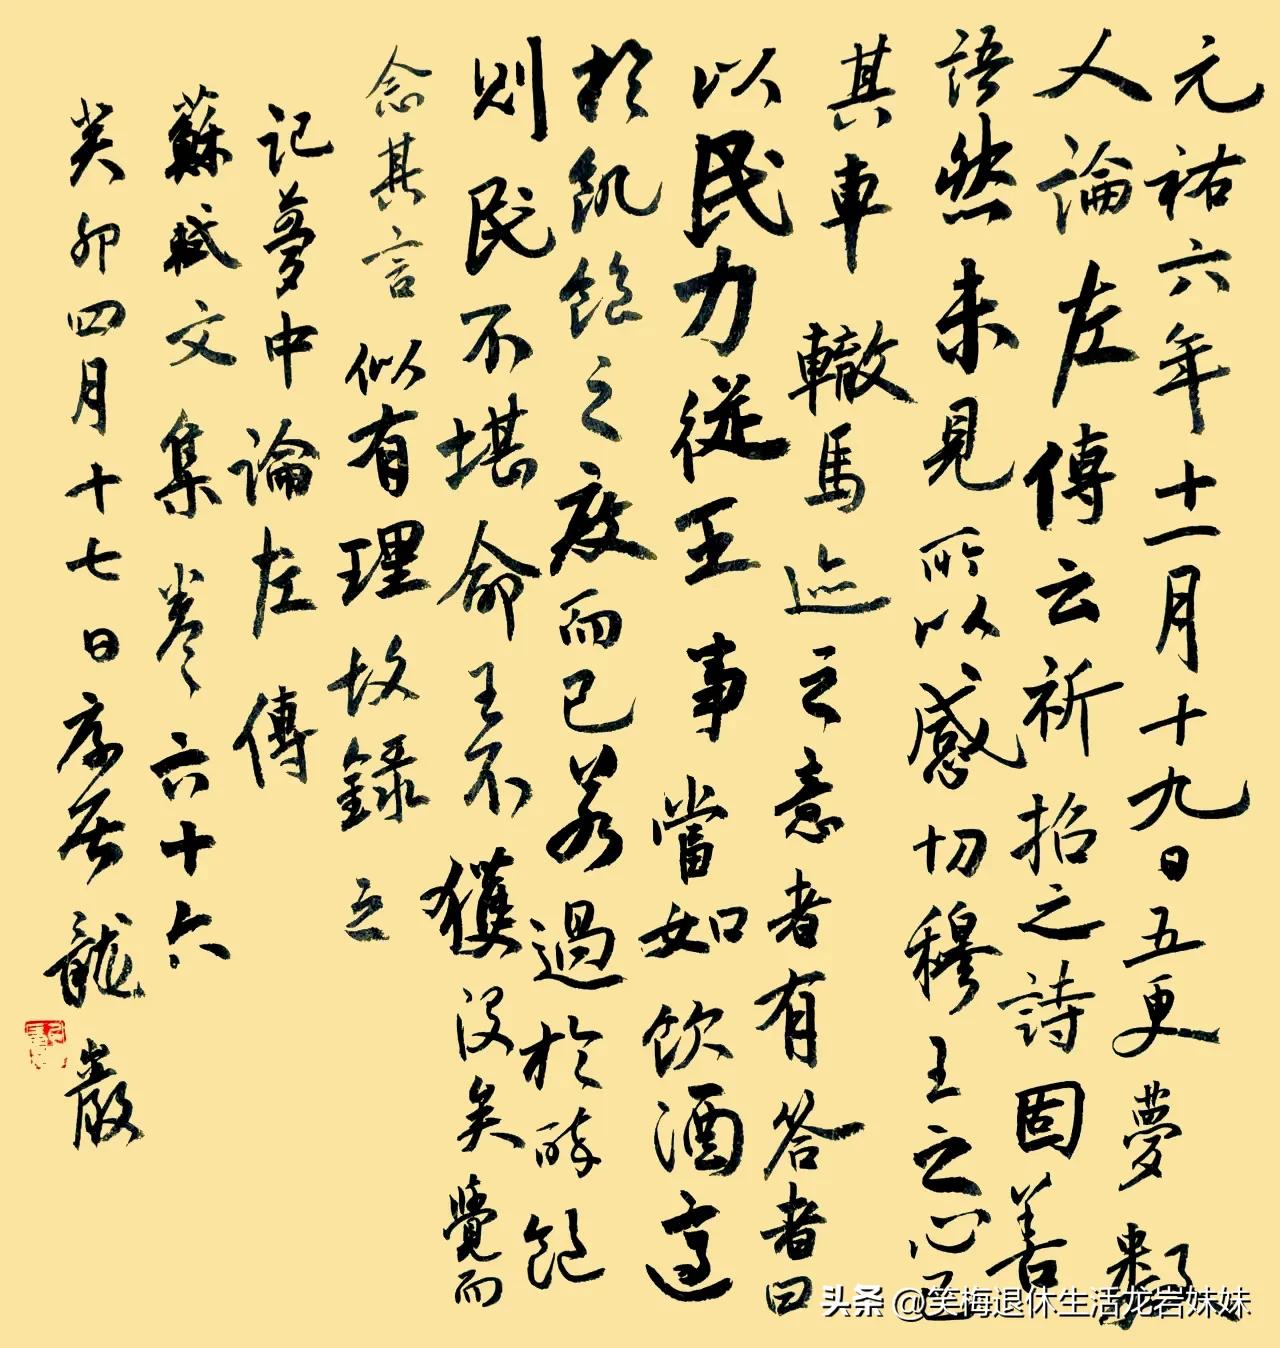 元祐六年十一月十九日五更夢數
人論左傳云祈招之詩固善
語然未見所以感切穆王之心已
其車轍馬迹之意者有答者曰
以民力從王事當如飲酒適
於飢飽之度而已若過於醉飽
则民不堪命王不獲没矣覺而
念其言似有理故錄之
记夢中論左傳
蘇軾文集卷六十六
癸卯四月十七日龍巖
头条 @笑梅退休生活龙岩妹妹